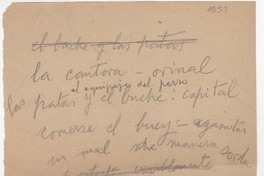 1051
el buche y las patas
la cantora - orinal
el equipaje del perro
las patas y el buche: capital
comerse el buey - aguantar
un mal de manera sorda